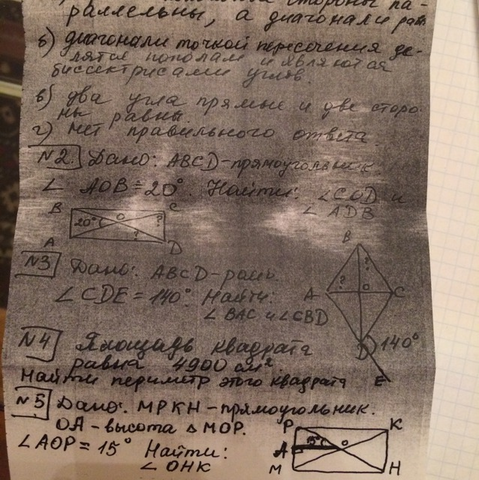 стороны па-
раллельны, а диагонали
б) диагонали точкой пересечения де-
лятся пополам и являются
биссектрисами углов.
в) два угла прямые и две сторо-
ны равны.
г) нет правильного ответа
№2 Дано: ABCD-прямоугольник
∠ AOB = 20°. Найти: ∠COD и
∠ ADB
B C
20° O
A D
№3 Дано: ABCD-ромб.
∠ CDE = 140° Найти:
∠ BAC и ∠CBD
B
? ?
A C
D 140°
E
№4 Площадь квадрата
равна 4900 см²
Найти периметр этого квадрата
№5 Дано: MPKH-прямоугольник.
OA-высота ΔMOP.
∠AOP = 15° Найти:
∠OHK
P K
A 15° O
M H